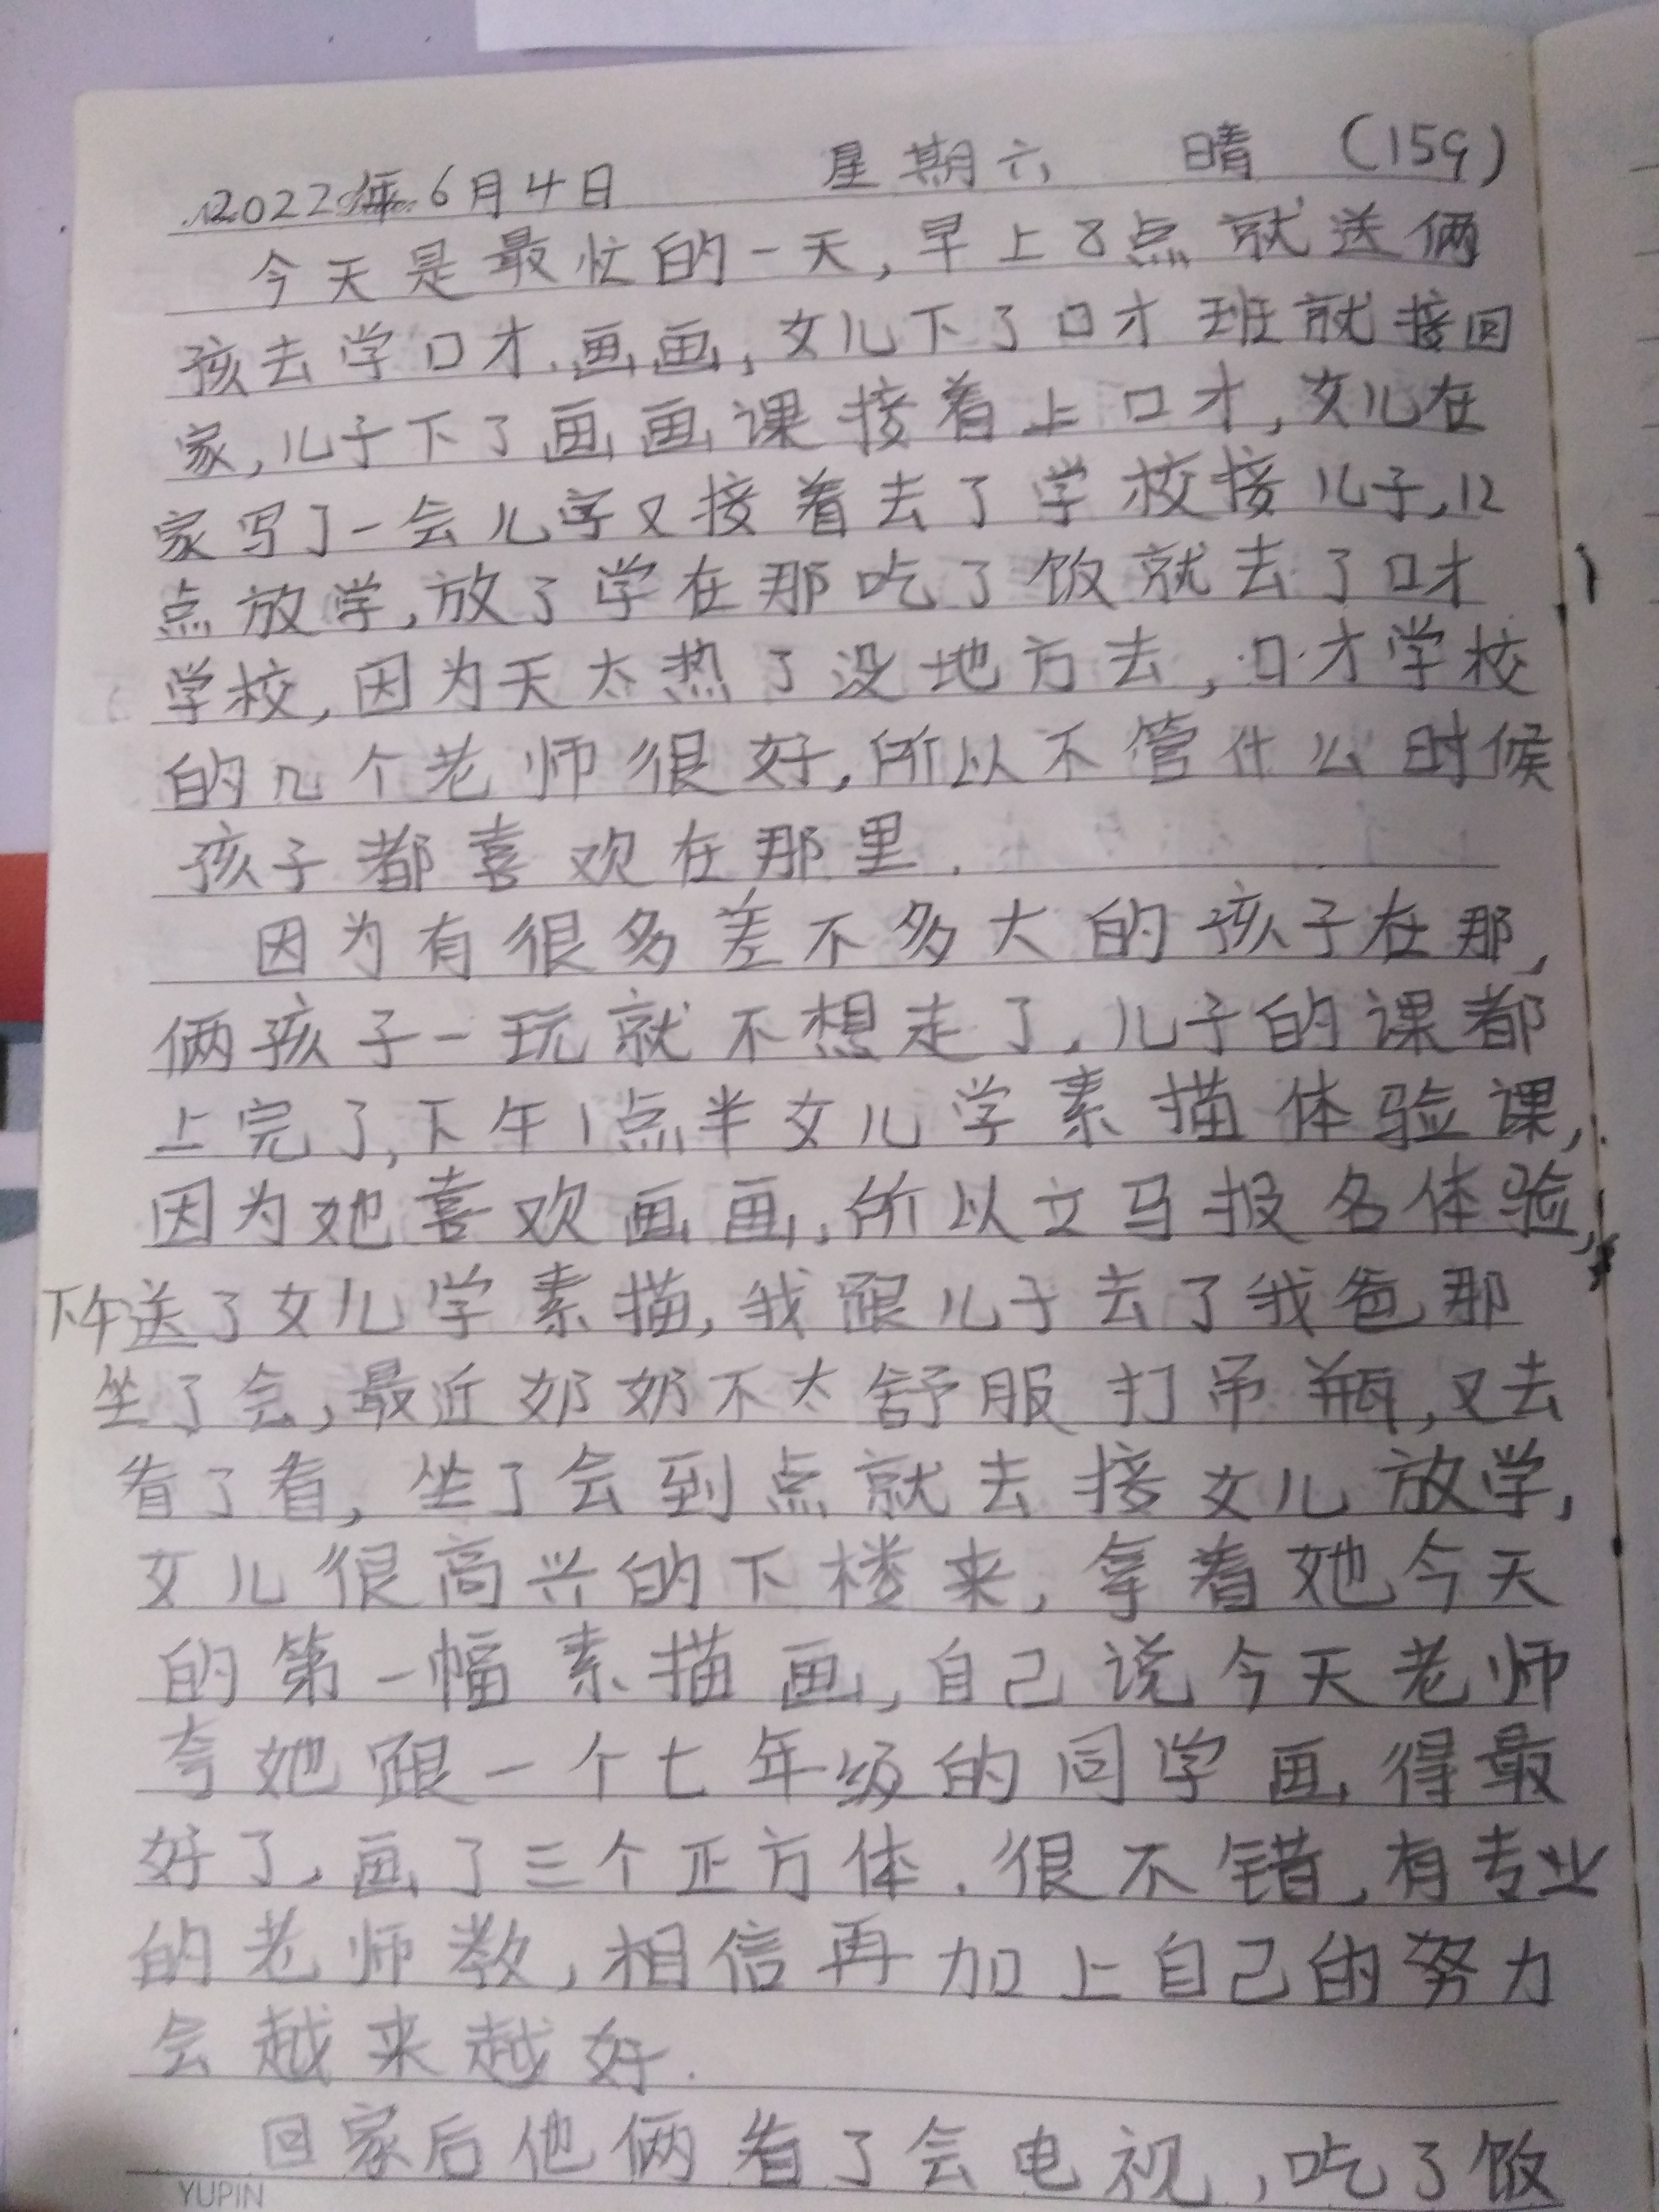 2022年6月4日 星期六 晴 (159)
今天是最忙的一天,早上8点就送俩
孩去学口才.画画,女儿下了口才班就接回
家,儿子下了画画课接着上口才,女儿在
家写了一会儿字又接着去了学校接儿子,12
点放学,放了学在那吃了饭就去了口才
学校,因为天太热了没地方去,口才学校
的几个老师很好,所以不管什么时候
孩子都喜欢在那里.
因为有很多差不多大的孩子在那,
俩孩子一玩就不想走了,儿子的课都
上完了,下午1点半女儿学素描体验课,
因为她喜欢画画,所以立马报名体验,
下午送了女儿学素描,我跟儿子去了我爸那
坐了会,最近奶奶不太舒服打吊瓶,又去
看了看,坐了会到点就去接女儿放学,
女儿很高兴的下楼来,拿着她今天
的第一幅素描画,自己说今天老师
夸她跟一个七年级的同学画得最
好了,画了三个正方体.很不错,有专业
的老师教,相信再加上自己的努力
会越来越好.
回家后他俩看了会电视,吃了饭
YUPIN